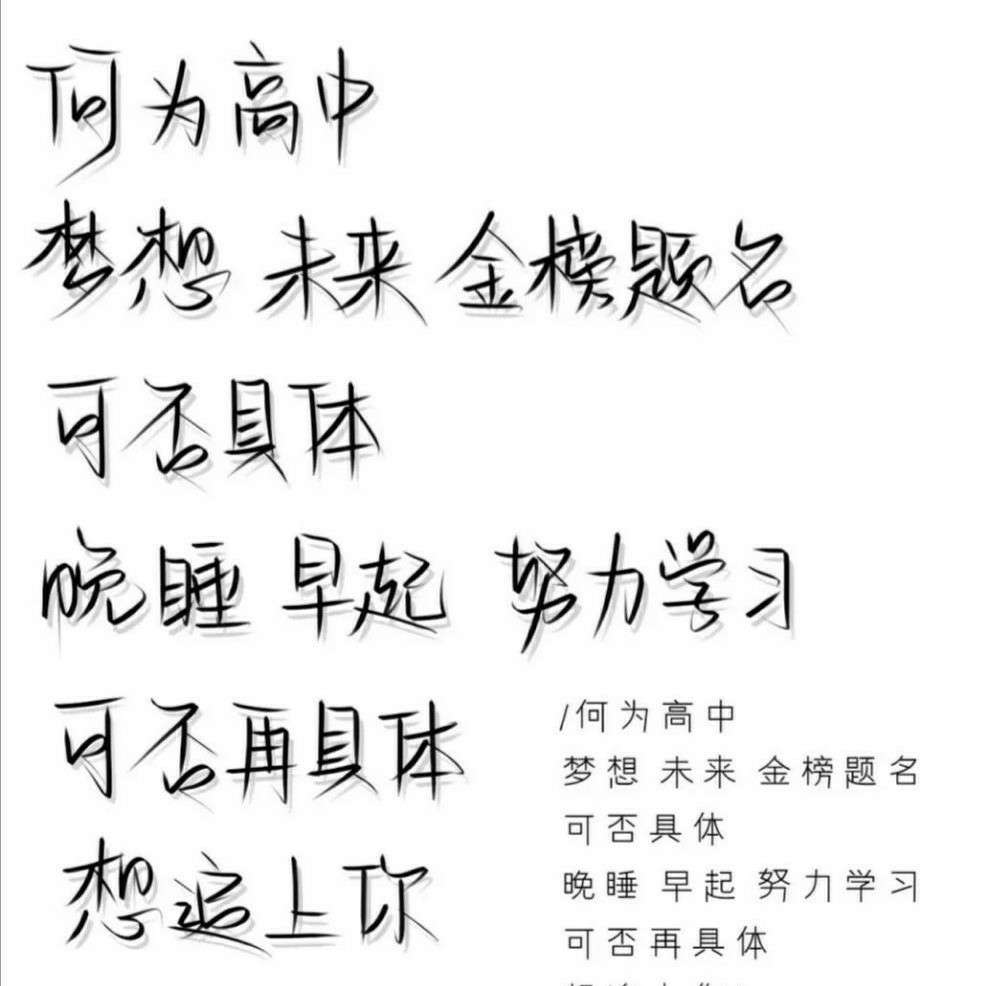 何为高中
梦想 未来 金榜题名
可否具体
晚睡 早起 努力学习
可否再具体
想追上你
/何为高中
梦想 未来 金榜题名
可否具体
晚睡 早起 努力学习
可否再具体